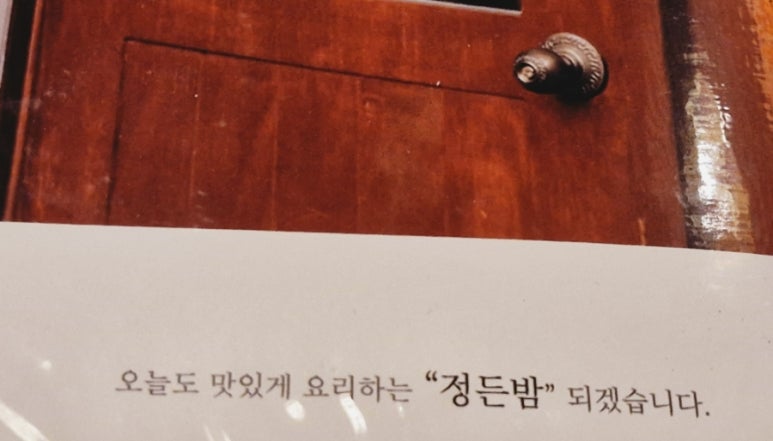 오늘도 맛있게 요리하는 “정든밤” 되겠습니다.